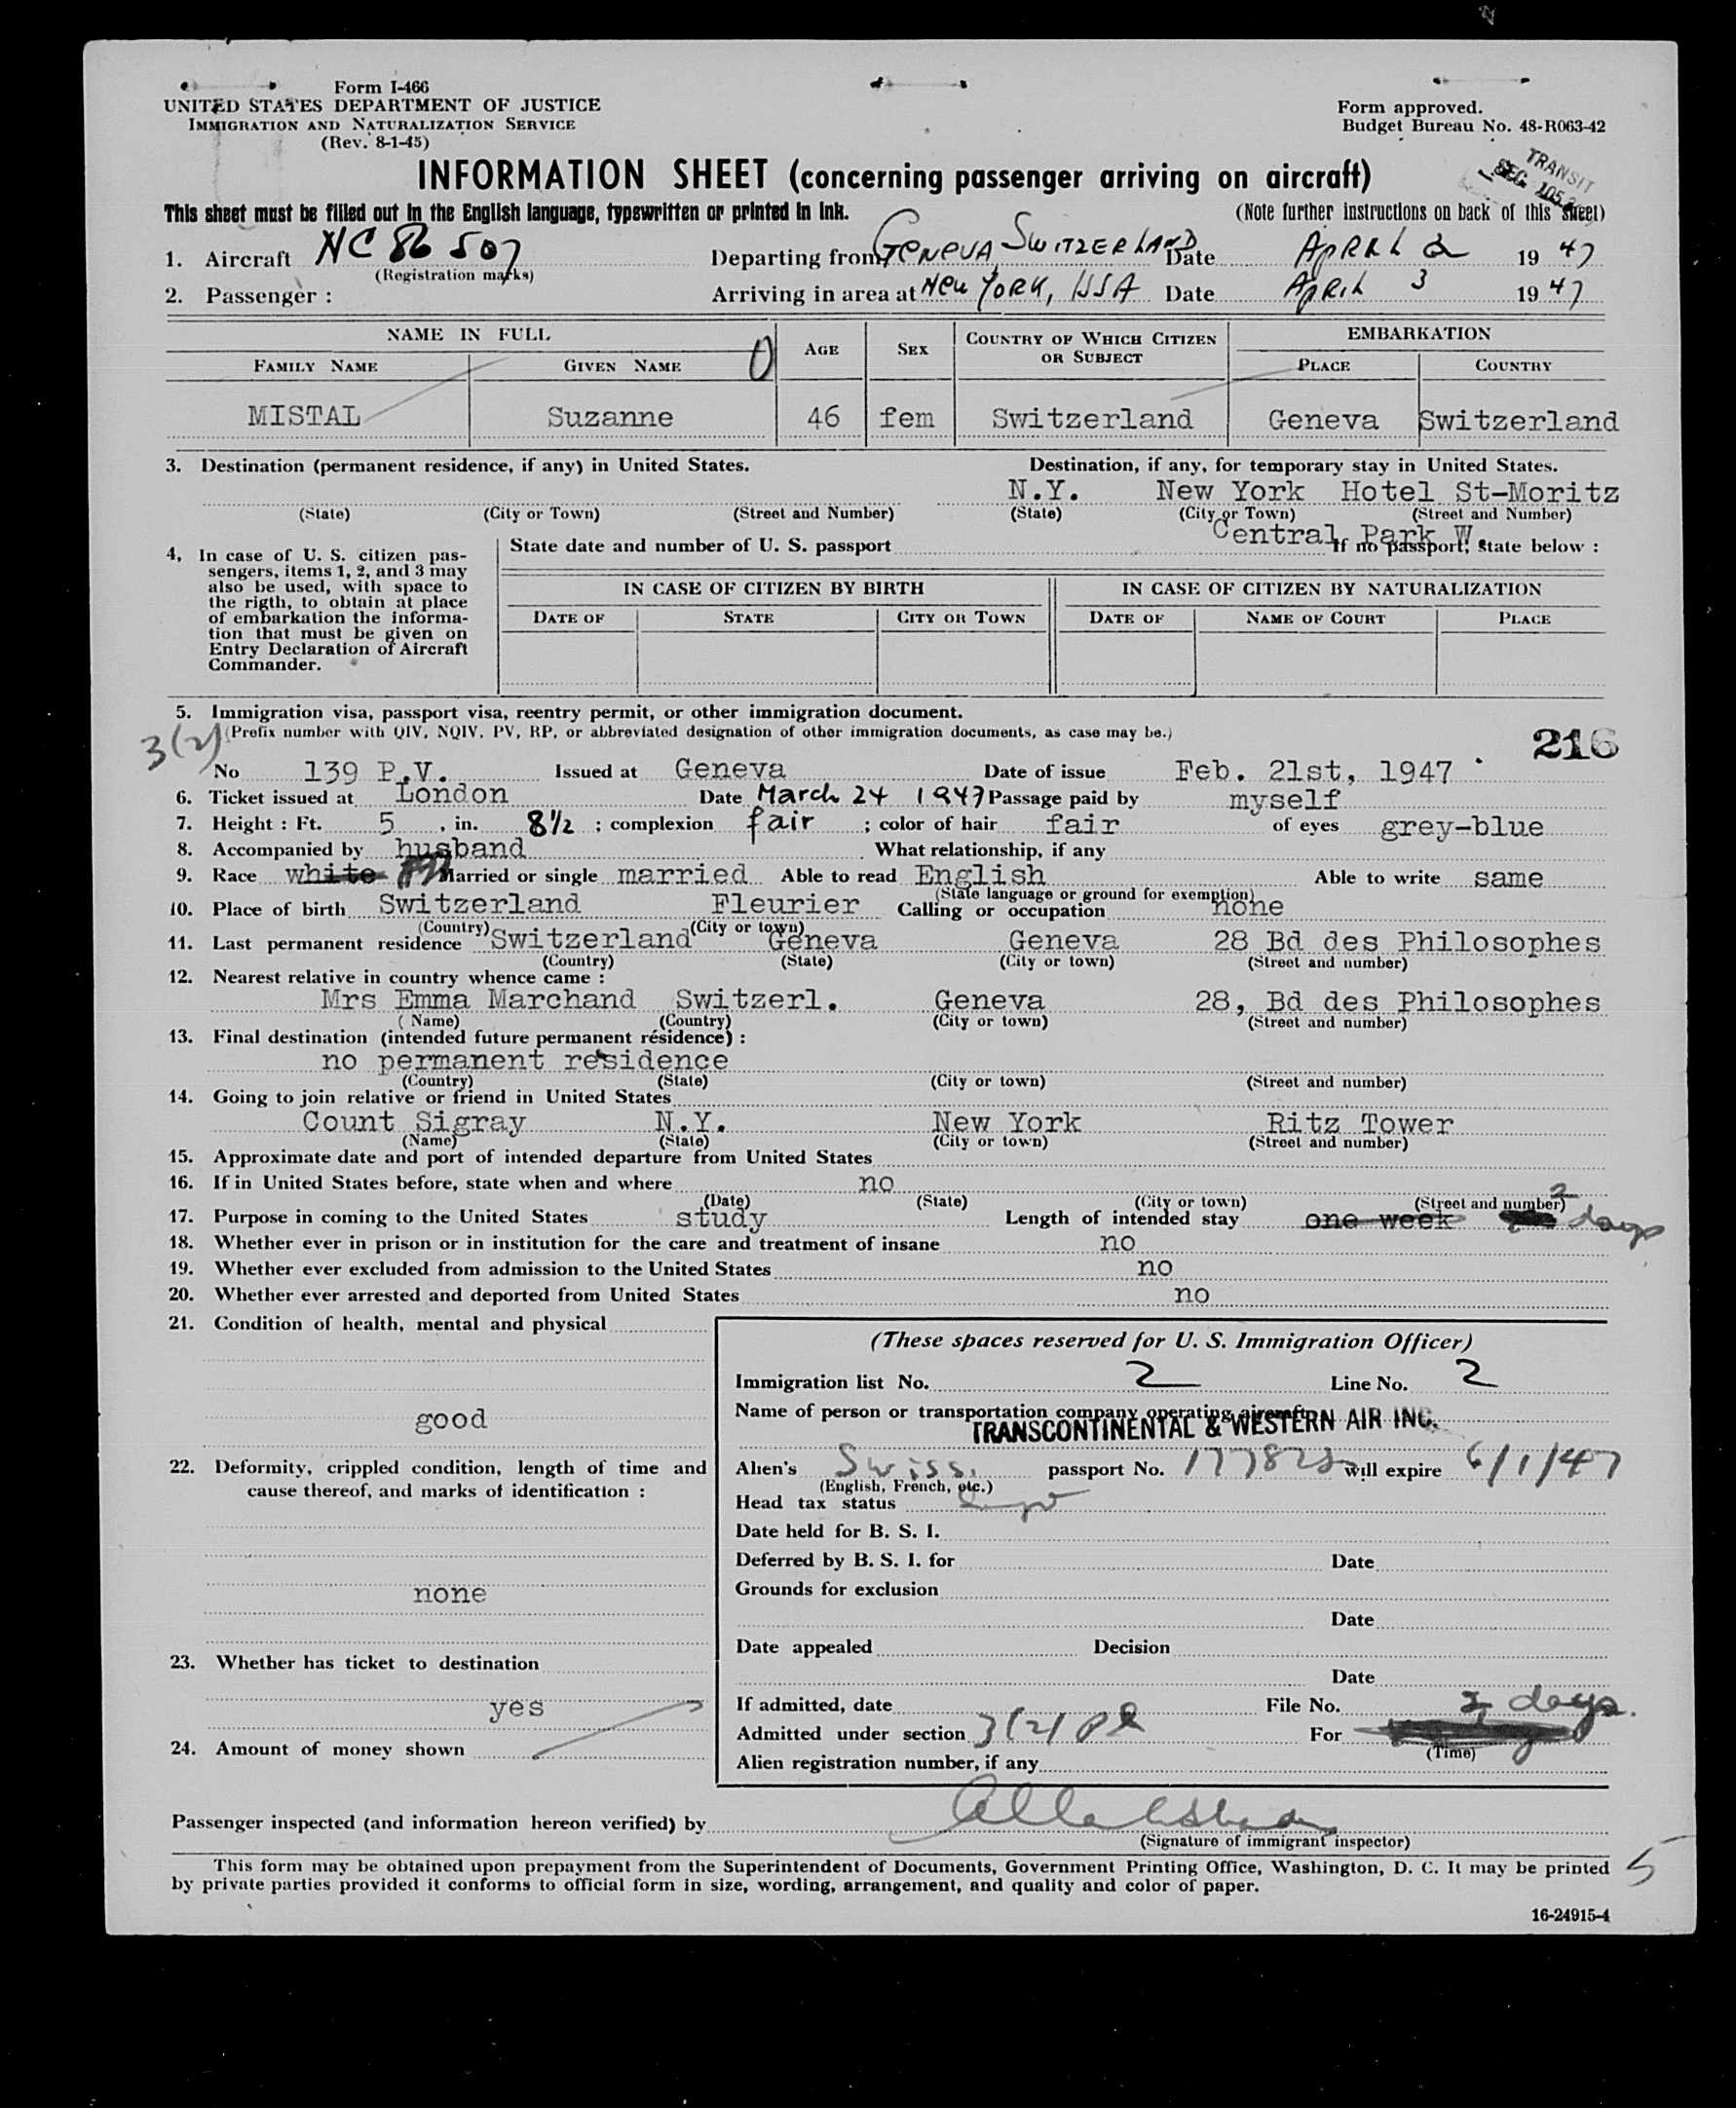 Form I-466
UNITED STATES DEPARTMENT OF JUSTICE
IMMIGRATION AND NATURALIZATION SERVICE
(Rev. 8-1-45)
Form approved.
Budget Bureau No. 48-R063-42
INFORMATION SHEET (concerning passenger arriving on aircraft)
TRANSIT
SEC.
This sheet must be filled out in the English language, typewritten or printed in ink. (Note further instructions on back of this sheet)
1. Aircraft NC 86507 Departing from GENEVA SWITZERLAND Date APRIL 2 19 47
(Registration marks)
2. Passenger : Arriving in area at NEW YORK, USA Date APRIL 3 19 47
NAME IN FULL AGE SEX COUNTRY OF WHICH CITIZEN OR SUBJECT EMBARKATION
FAMILY NAME GIVEN NAME PLACE COUNTRY
MISTAL Suzanne 46 fem Switzerland Geneva Switzerland
3. Destination (permanent residence, if any) in United States. Destination, if any, for temporary stay in United States.
N.Y. New York Hotel St-Moritz
(State) (City or Town) (Street and Number) (State) (City or Town) (Street and Number)
Central Park W.
4, In case of U. S. citizen pas-
sengers, items 1, 2, and 3 may
also be used, with space to
the rigth, to obtain at place
of embarkation the informa-
tion that must be given on
Entry Declaration of Aircraft
Commander.
State date and number of U. S. passport If no passport, state below :
IN CASE OF CITIZEN BY BIRTH IN CASE OF CITIZEN BY NATURALIZATION
DATE OF STATE CITY OR TOWN DATE OF NAME OF COURT PLACE
5. Immigration visa, passport visa, reentry permit, or other immigration document.
3(2) (Prefix number with QIV, NQIV, PV, RP, or abbreviated designation of other immigration documents, as case may be.) 216
No 139 P.V. Issued at Geneva Date of issue Feb. 21st, 1947
6. Ticket issued at London Date March 24 1947 Passage paid by myself
7. Height : Ft. 5 , in. 8½ ; complexion fair ; color of hair fair of eyes grey-blue
8. Accompanied by husband What relationship, if any
9. Race white Married or single married Able to read English Able to write same
(State language or ground for exemption)
10. Place of birth Switzerland Fleurier Calling or occupation none
(Country) (City or town)
11. Last permanent residence Switzerland Geneva Geneva 28 Bd des Philosophes
(Country) (State) (City or town) (Street and number)
12. Nearest relative in country whence came :
Mrs Emma Marchand Switzerl. Geneva 28, Bd des Philosophes
(Name) (Country) (City or town) (Street and number)
13. Final destination (intended future permanent résidence) :
no permanent residence
(Country) (State) (City or town) (Street and number)
14. Going to join relative or friend in United States
Count Sigray N.Y. New York Ritz Tower
(Name) (State) (City or town) (Street and number)
15. Approximate date and port of intended departure from United States
16. If in United States before, state when and where no
(Date) (State) (City or town) (Street and number)
17. Purpose in coming to the United States study Length of intended stay one week 2 days
18. Whether ever in prison or in institution for the care and treatment of insane no
19. Whether ever excluded from admission to the United States no
20. Whether ever arrested and deported from United States no
21. Condition of health, mental and physical
good
22. Deformity, crippled condition, length of time and
cause thereof, and marks of identification :
none
23. Whether has ticket to destination
yes
24. Amount of money shown
(These spaces reserved for U. S. Immigration Officer)
Immigration list No. 2 Line No. 2
Name of person or transportation company operating aircraft
TRANSCONTINENTAL & WESTERN AIR INC.
Alien's Swiss passport No. will expire 6/1/47
(English, French, etc.)
Head tax status
Date held for B. S. I.
Deferred by B. S. I. for Date
Grounds for exclusion
Date
Date appealed Decision
Date
If admitted, date File No.
2 days.
Admitted under section 3(2) For
(Time)
Alien registration number, if any
Passenger inspected (and information hereon verified) by
(Signature of immigrant inspector)
This form may be obtained upon prepayment from the Superintendent of Documents, Government Printing Office, Washington, D. C. It may be printed
by private parties provided it conforms to official form in size, wording, arrangement, and quality and color of paper.
5
16-24915-4